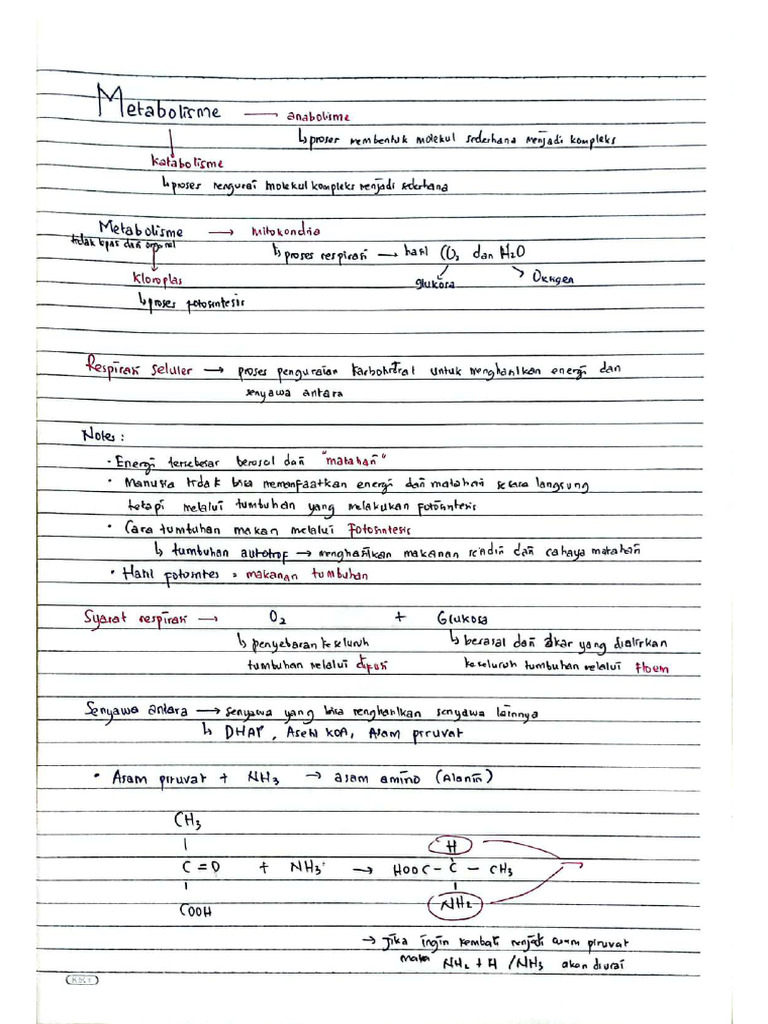 Metabolisme → anabolisme
↳ proses membentuk molekul sederhana menjadi kompleks
katabolisme
↳ proses mengurai molekul kompleks menjadi sederhana
Metabolisme → mitokondria
tidak lepas dari organel
↳ proses respirasi → hasil CO2 dan H2O
kloroplas
glukosa
Oksigen
↳ proses fotosintesis
Respirasi seluler → proses penguraian karbohidrat untuk menghasilkan energi dan
senyawa antara
Notes :
• Energi tersebesar berasal dari "matahari"
• Manusia tidak bisa memanfaatkan energi dari matahari secara langsung
tetapi melalui tumbuhan yang melakukan fotosintesis
• Cara tumbuhan makan melalui fotosintesis
↳ tumbuhan autotrof → menghasilkan makanan sendiri dari cahaya matahari
• Hasil fotosintes = makanan tumbuhan
Syarat respirasi → O2 + Glukosa
↳ penyebaran keseluruh ↳ berasal dari akar yang dialirkan
tumbuhan melalui difusi keseluruh tumbuhan melalui floem
Senyawa antara → senyawa yang bisa menghasilkan senyawa lainnya
↳ DHAP, Asetil KOA, Asam piruvat
• Asam piruvat + NH3 → asam amino (Alanin)
CH3
H
C = O + NH3 → HOOC - C - CH3
COOH
NH2
→ Jika ingin kembali menjadi asam piruvat
maka NH2 + H / NH3 akan diurai